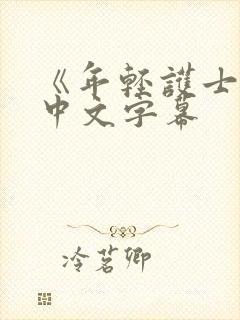 《年轻護士
中文字幕
冷茗卿